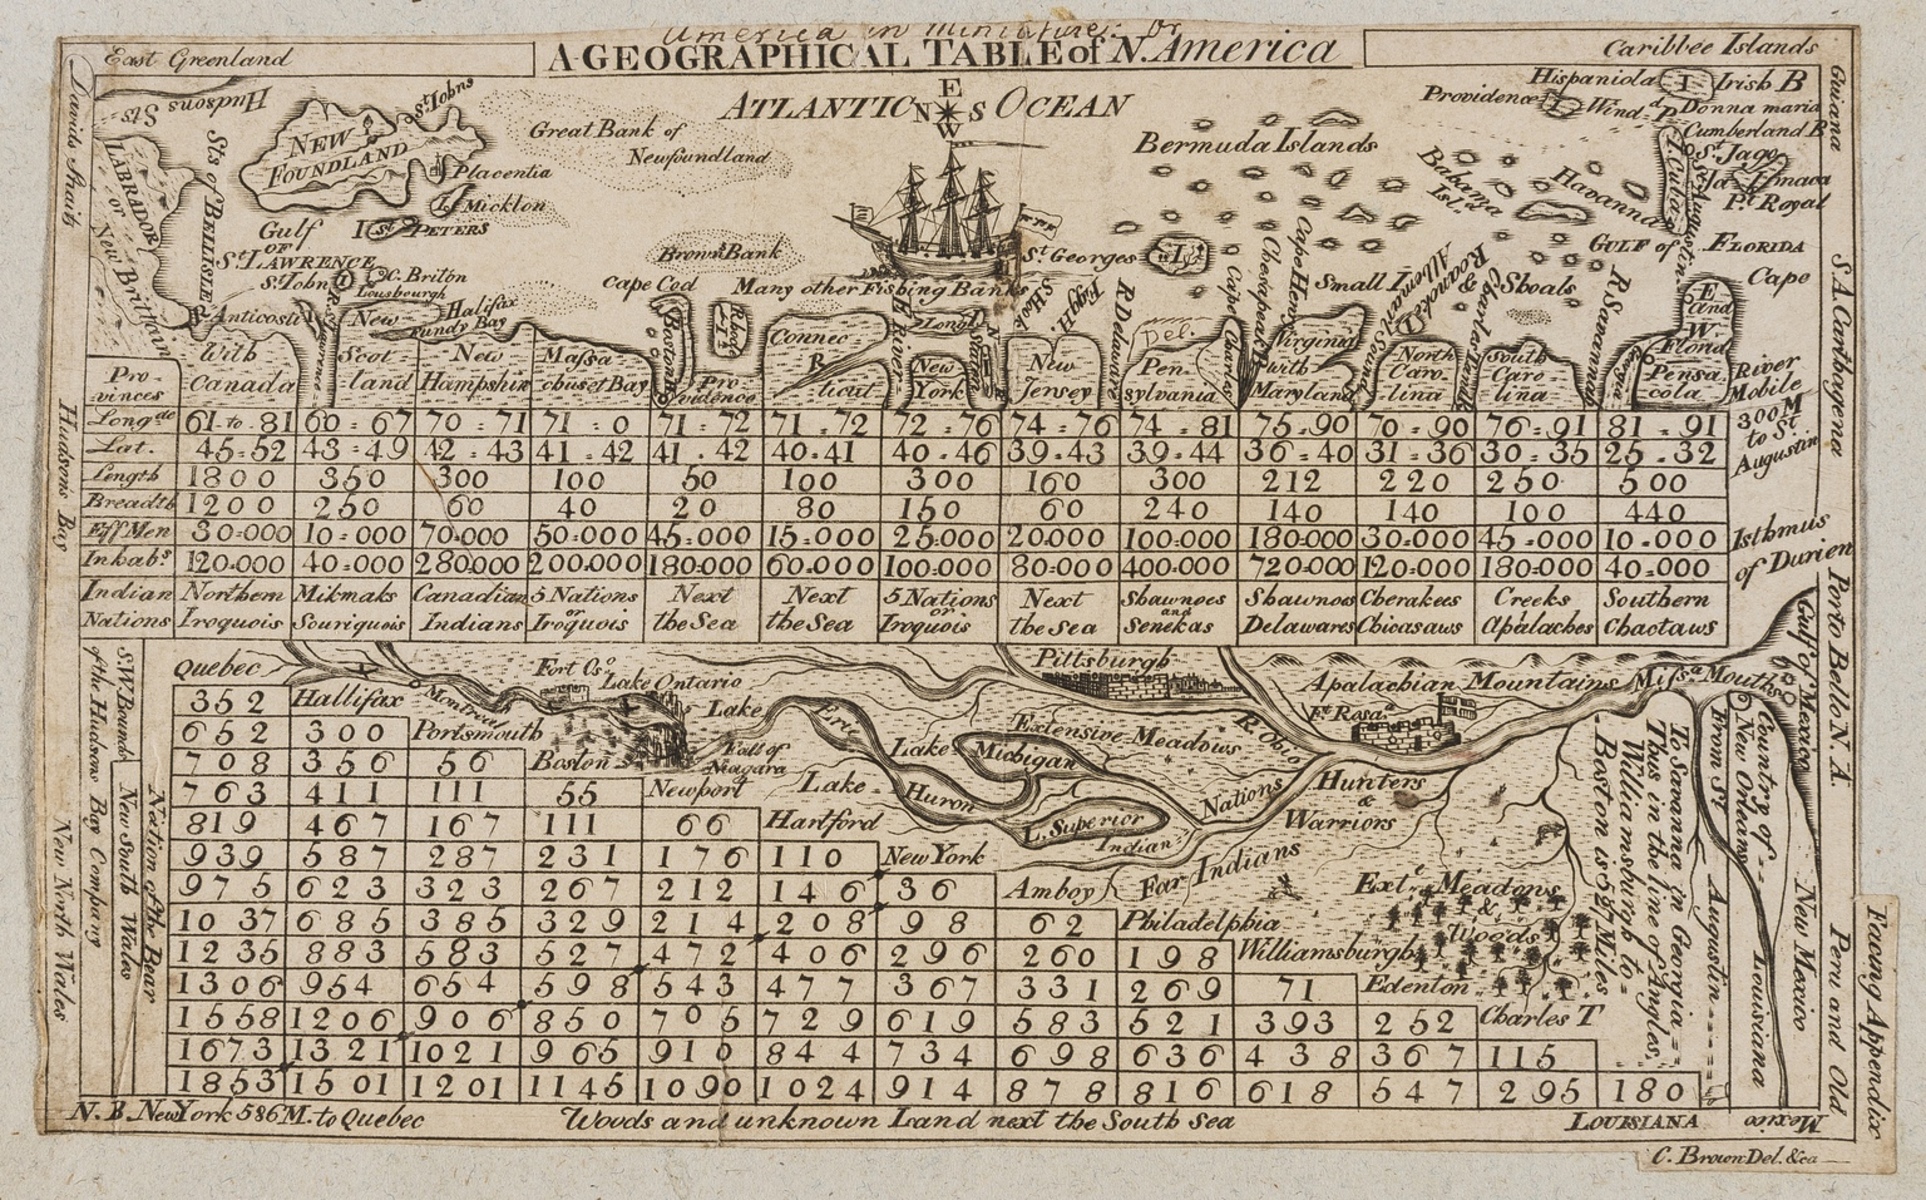 America in Miniature: Or
A GEOGRAPHICAL TABLE of N. America
East Greenland
Caribbee Islands
Davids Straits
Hudsons Sts
ATLANTIC OCEAN
E
N S
W
Hispaniola I Irish B
Providence I Wind.d P
Donna maria
Cumberland B
St. Jago
Jamaca
Pt. Royal
I. Cuba
St. Augustin
Guiana
S.A. Carthagena
LABRADOR
or
New Brittain
Sts of BELLISLE
NEW
FOUNDLAND
St. Johns
Placentia
I Micklon
I St. PETERS
Great Bank of
Newfoundland
Gulf
OF
St. LAWRENCE
St. John I
C. Briton
Lousbourgh
Anticosti
Halifax
Fundy Bay
Brown's Bank
Cape Cod
Many other Fishing Banks
St. Georges I
Bermuda Islands
Bahama
Isl.s
Havanna
GULF of FLORIDA
Cape
Small Isl.
& Shoals
Boston H
Rhode I
R
H River
Long I
Staten I
S Hook
Egg H.
R Delaware
Del.
Cape Charles
Chesapeak B
Cape Henry
Albemarl Sound
Roanoke I
Charles
R Savannah
Georgia
E
and
W
Florid
River
Mobile
300 M
to St.
Augustin
Isthmus
of Durien
Porto Bello N. A.
Provinces | With Canada | New Scotland | New Hampshir | Massachuset Bay | Providence | Connecticut | New York | New Jersey | Pensylvania | Virginia with Maryland | North Carolina | South Carolina | Pensacola
Longde | 61 to 81 | 60 = 67 | 70 = 71 | 71 = 0 | 71 = 72 | 71 = 72 | 72 = 76 | 74 = 76 | 74 = 81 | 75 = 90 | 70 = 90 | 76 = 91 | 81 = 91
Lat. | 45=52 | 43=49 | 42=43 | 41=42 | 41.42 | 40.41 | 40.46 | 39.43 | 39.44 | 36=40 | 31=36 | 30=35 | 25=32
Length | 1800 | 350 | 300 | 100 | 50 | 100 | 300 | 160 | 300 | 212 | 220 | 250 | 500
Breadth | 1200 | 250 | 60 | 40 | 20 | 80 | 150 | 60 | 240 | 140 | 140 | 100 | 440
Eff Men | 30=000 | 10=000 | 70=000 | 50=000 | 45=000 | 15=000 | 25=000 | 20.000 | 100=000 | 180=000 | 30=000 | 45=000 | 10=000
Inhabs | 120=000 | 40=000 | 280=000 | 200=000 | 180=000 | 60=000 | 100=000 | 80=000 | 400=000 | 720=000 | 120=000 | 180=000 | 40=000
Indian | Northern | Mikmaks | Canadian | 5 Nations or | Next | Next | 5 Nations or | Next | Shawnoes and | Shawnoes | Cherakees | Creeks | Southern
Nations | Iroquois | Souriquois | Indians | Iroquois | the Sea | the Sea | Iroquois | the Sea | Senekas | Delawares | Chicasaws | Apalaches | Chactaws
Hudsons Bay
S.W. Bounds
of the Hudsons Bay Company
New South Wales
New North Wales
Nation of the Bear
Quebec
Montreal
Fort Os.o
Lake Ontario
Fall of
Niagara
Lake
Erie
Lake
Michigan
Lake
Huron
L. Superior
Pittsburgh
Extensive Meadows
R. Ohio
Apalachian Mountains
Ft. Rosa.a
Miss.a Mouths
Gulf of Mexico
Indian
Nations
Hunters
&
Warriors
Far Indians
Ext.e Meadows
&
Woods
352 Hallifax
652 300 Portsmouth
708 356 56 Boston
763 411 111 55 Newport
819 467 167 111 66 Hartford
939 587 287 231 176 110 New York
975 623 323 267 212 146 36 Amboy
1037 685 385 329 214 208 98 62 Philadelphia
1235 883 583 527 472 406 296 260 198 Williamsburgh
1306 954 654 598 543 477 367 331 269 71 Edenton
1558 1206 906 850 705 729 619 583 521 393 252 Charles T
1673 1321 1021 965 910 844 734 698 636 438 367 115
1853 1501 1201 1145 1090 1024 914 878 816 618 547 295 180
Boston is 587 Miles
Williamsburgh to
Thus in the line of Angles
To Savanna in Georgia
From St. Augustin
Country of
New Orleans
Louisiana
New Mexico
Peru and Old
Mexico
Facing Appendix
N.B. New York 586 M. to Quebec
Woods and unknown Land next the South Sea
LOUISIANA
C. Brown Del. &ca